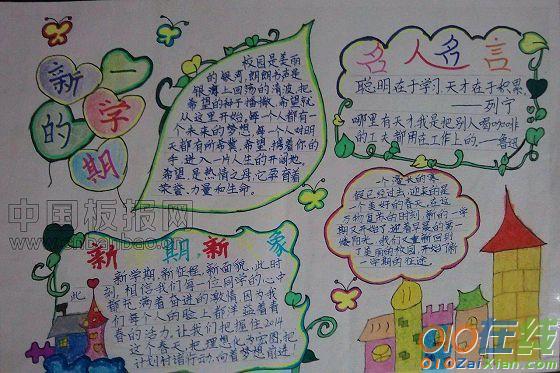 一
新
学
的
期
校园是美丽
的银河,朗朗书声是
银河上回荡的清波,把
希望的种子播撒,希望就
从这里开始,每个人都有一
个未来的梦想,每一个人对明
天都有所希冀,希望,携着你的
手,进入一片人生的开阔地。
希望,是热情之母,它孕育着
荣誉、力量和生命。
名人名言
聪明在于学习,天才在于积累。
——列宁
哪里有天才,我是把别人喝咖啡
的工夫都用在工作上的。——鲁迅
一个漫长的寒
假已经过去,迎来的是
一个美好的春天,在这
万物复苏的时刻,新的一学
期又开始了,迎着早晨的第一
缕阳光,我们又重新回到
了美丽的校园,开始了新
一学期的征途。
新期新象
新学期,新征程,新面貌,此时
此刻,相信我们每一位同学的心中
都充满着奋进的激情,因为我
们每个人的脸上都洋溢着青
春的活力,让我们把握住2014
这个春天,把理想化为宏图,把
计划付诸行动,向着梦想前进!
中国板报网
010在线
010ZaiXian.com